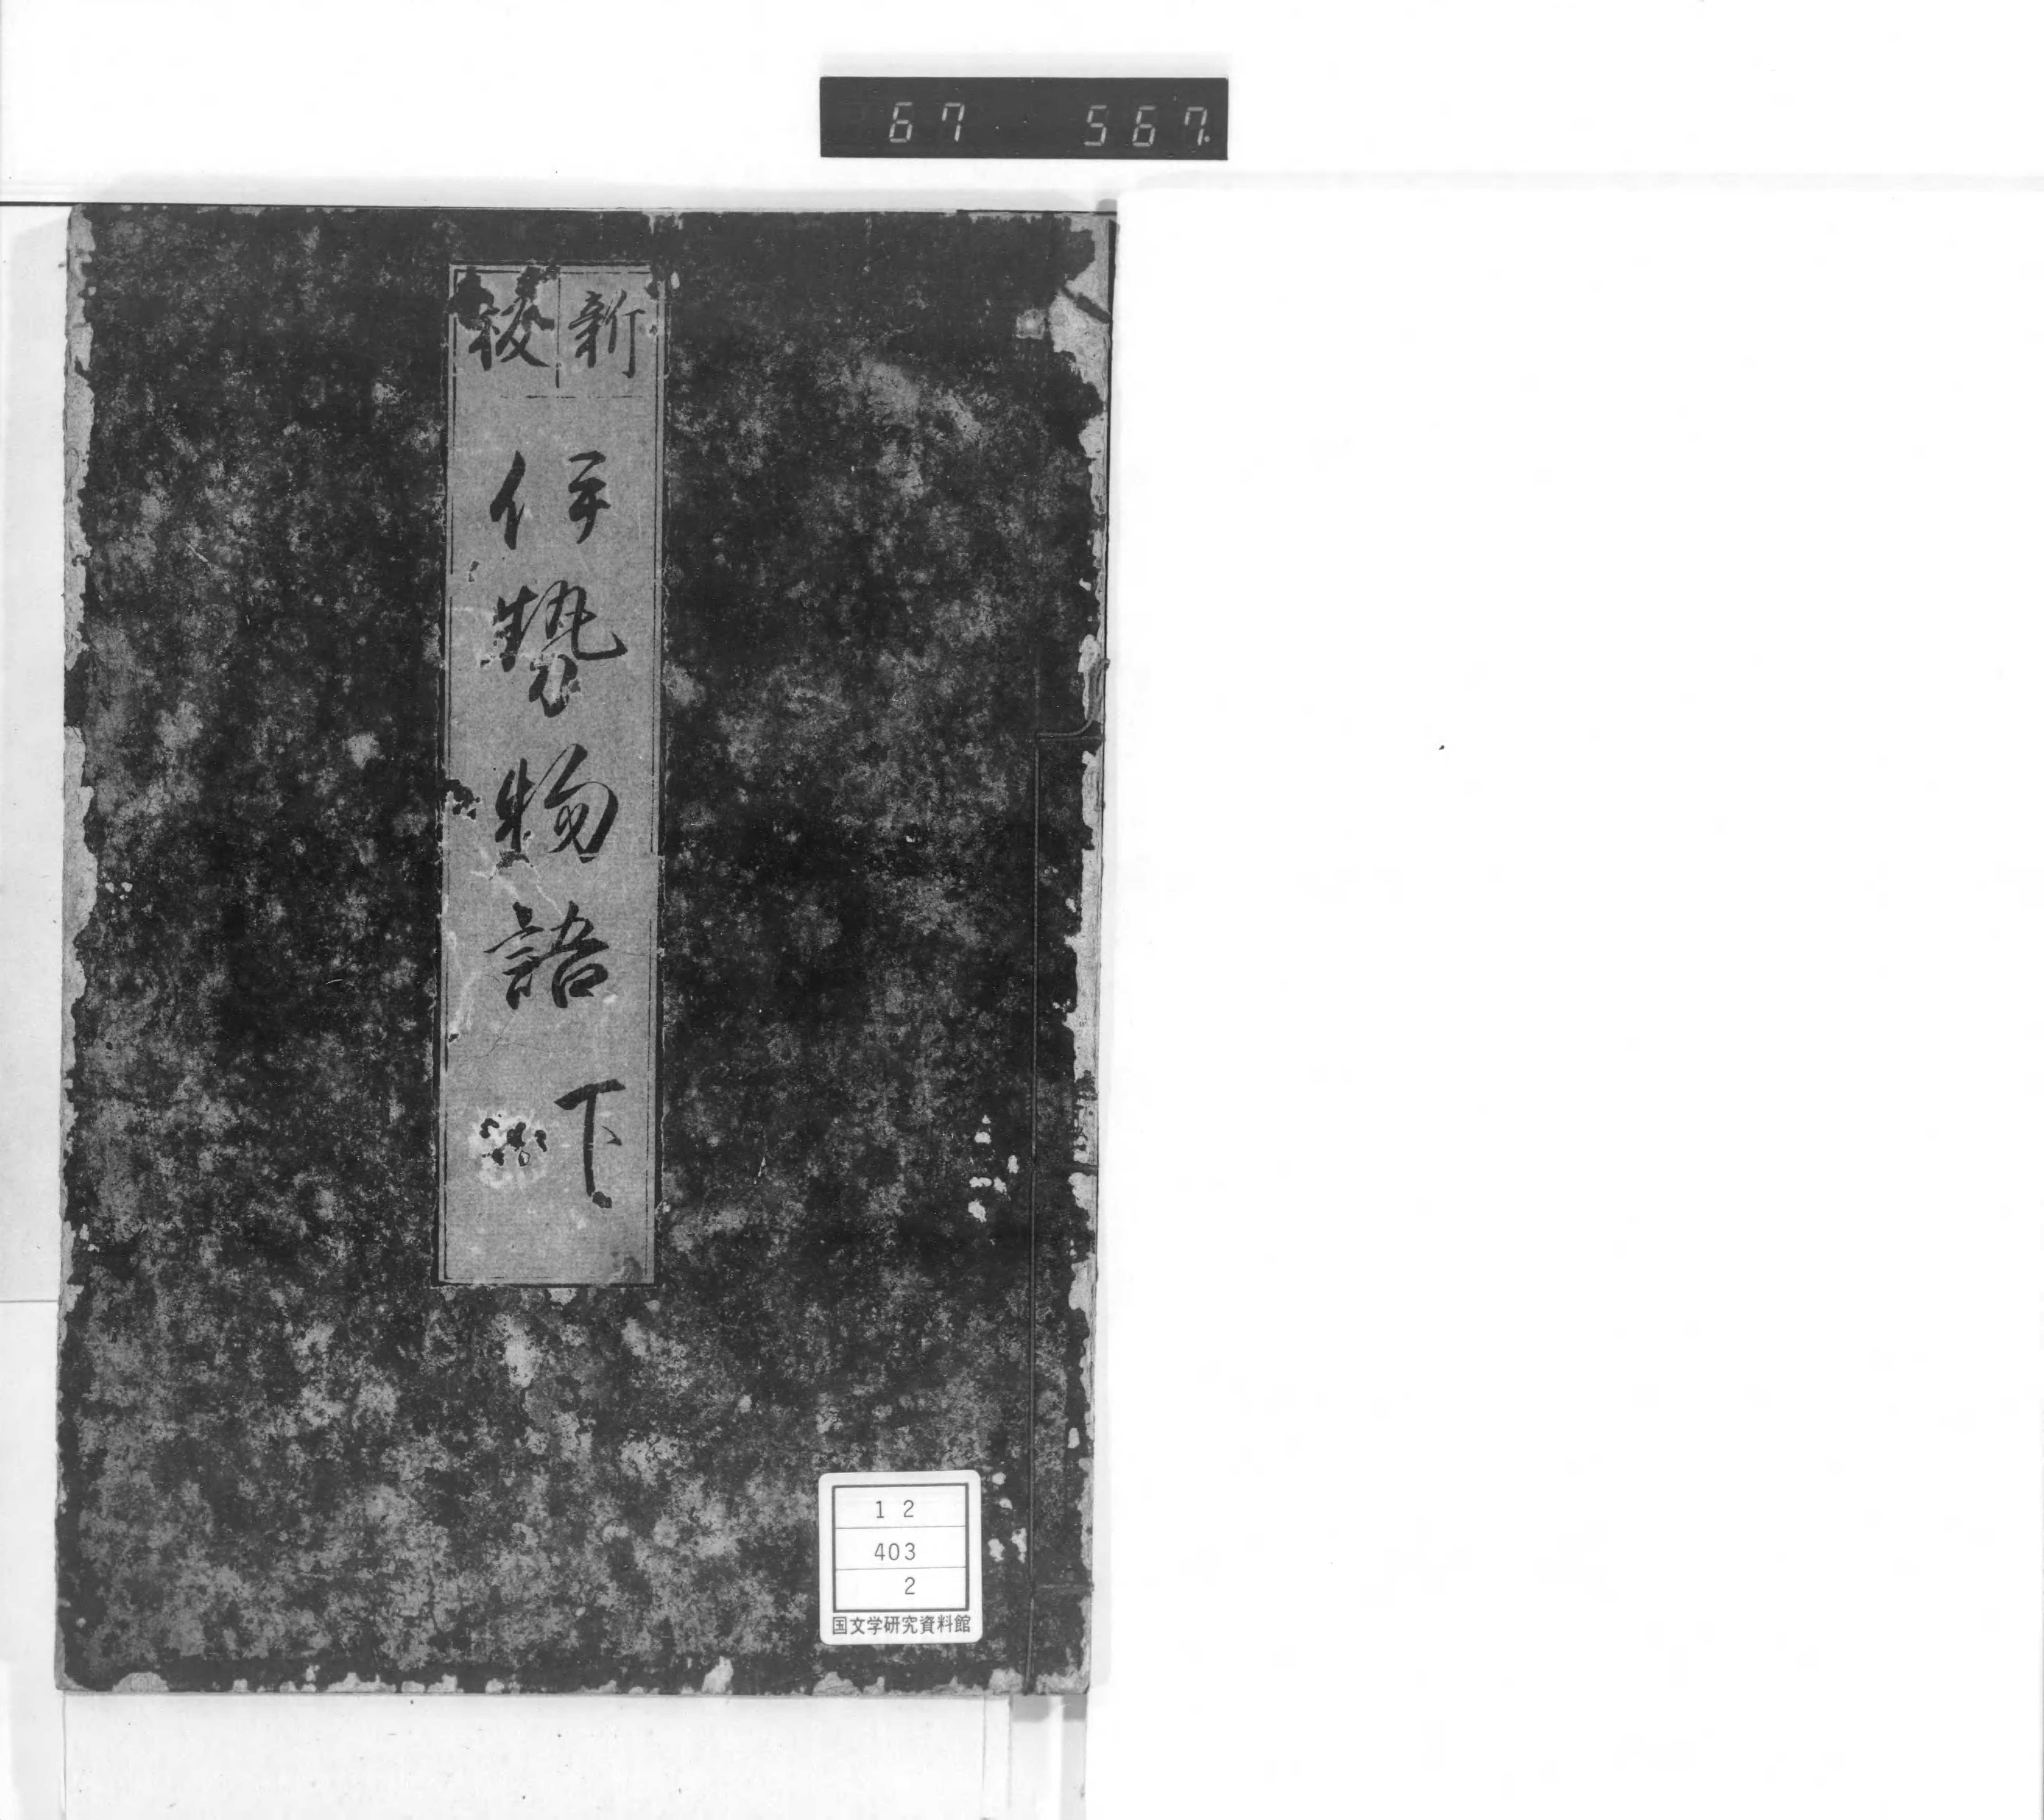 67 567.
新校
伊勢物語 下
12
403
2
国文学研究資料館